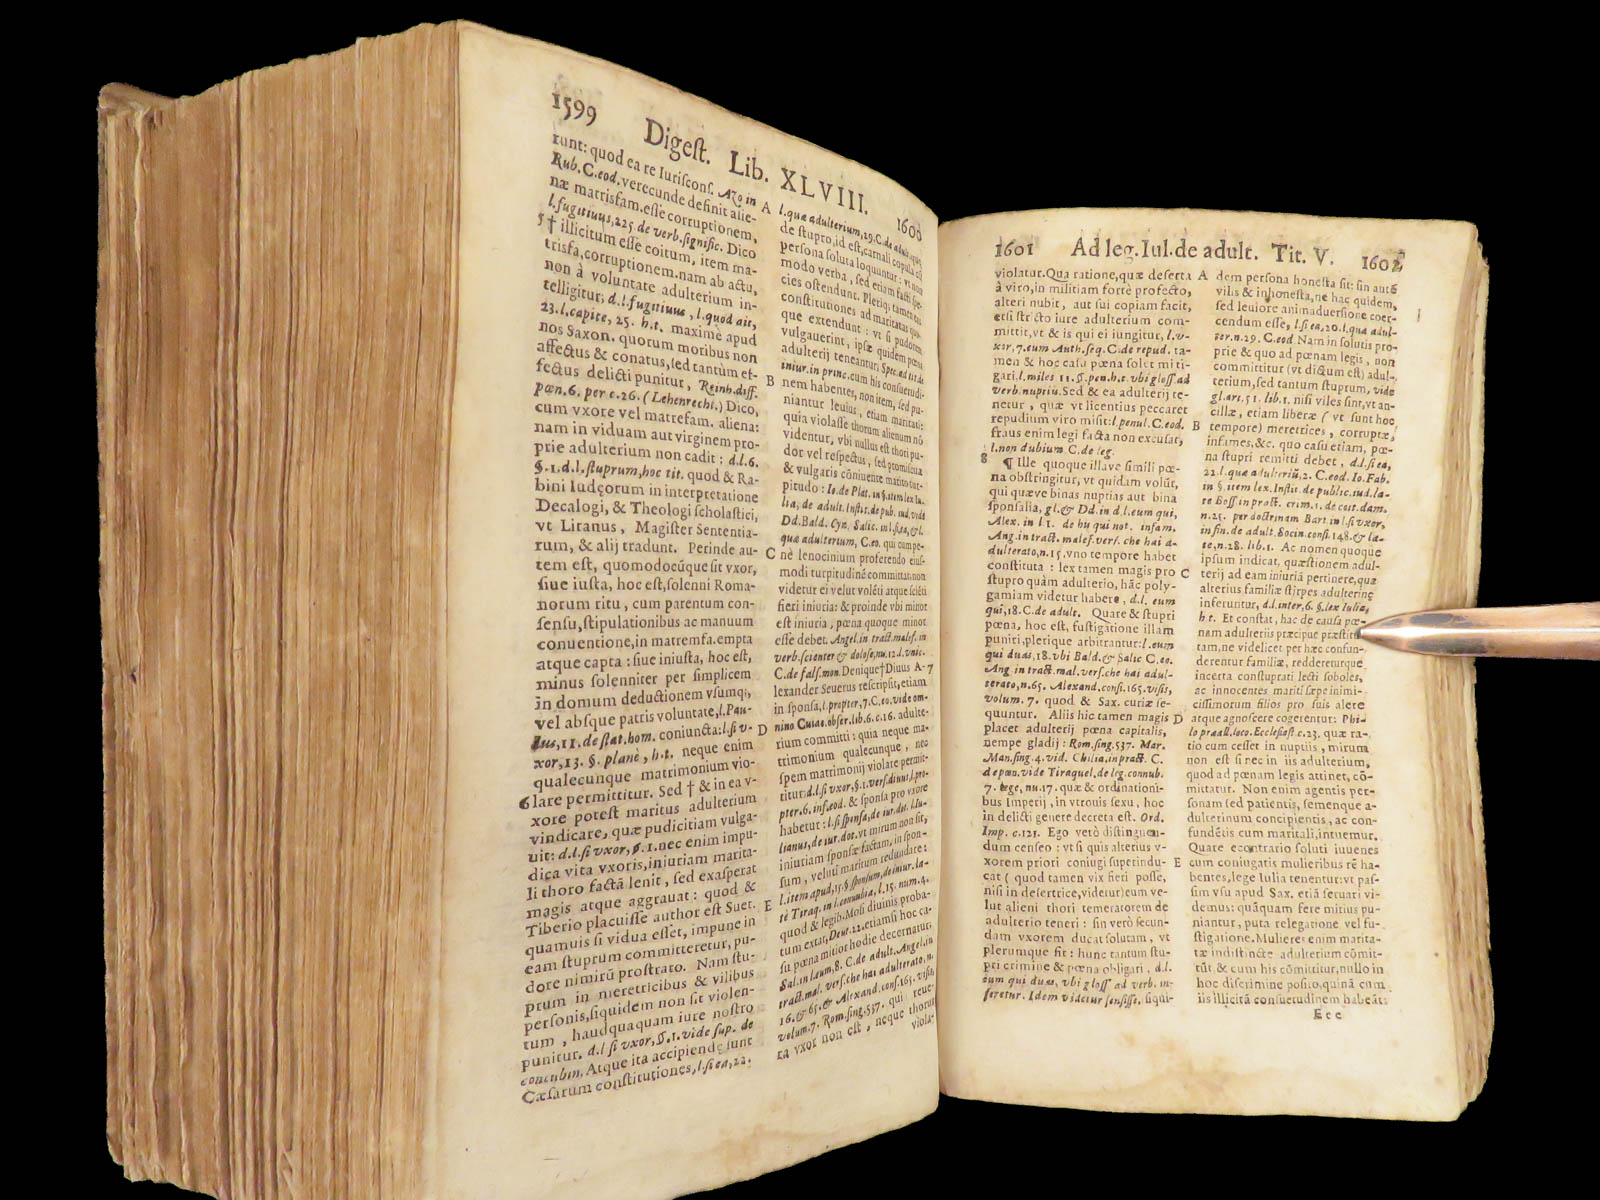 1599
Digest. Lib. XLVIII.
1600
runt: quod ea re Iuriscons. Azo in
Rub. C. eod. verecunde definit alie-
næ matrisfam. esse corruptionem,
l. fugitiuus, 225 de verb. signific. Dico
5 † illicitum esse coitum, item ma-
trisfa, corruptionem. nam ab actu,
non à voluntate adulterium in-
telligitur, d. l. fugitiuus, l. quod ait,
23. l. capite, 25. h. t. maximè apud
nos Saxon. quorum moribus non
affectus & conatus, sed tantùm ef-
fectus delicti punitur, Reinh. diff.
pœn. 6. per c. 26. (Lehenrecht.) Dico,
cum vxore vel matrefam. aliena:
nam in viduam aut virginem pro-
prie adulterium non cadit: d. l. 6.
§. 1. d. l. stuprum, hoc tit. quod & Ra-
bini Iudęorum in interpretatione
Decalogi, & Theologi scholastici,
vt Liranus, Magister Sententia-
rum, & alij tradunt. Perinde au-
tem est, quomodocúque sit vxor,
siue iusta, hoc est, solenni Roma-
norum ritu, cum parentum con-
sensu, stipulationibus ac manuum
conuentione, in matremfa. empta
atque capta: siue iniusta, hoc est,
minus solenniter per simplicem
in domum deductionem vsumq́;
vel absque patris voluntate, l. Pau-
lus, 11. de stat. hom. coniuncta: l. si v-
xor, 13. §. planè, h. t. neque enim
qualecunque matrimonium vio-
6 lare permittitur. Sed † & in ea v-
xore potest maritus adulterium
vindicare, quæ pudicitiam vulga-
uit: d. l. si vxor, §. 1. nec enim impu-
dica vita vxoris, iniuriam marita-
li thoro factā lenit, sed exasperat
magis atque aggrauat: quod &
Tiberio placuisse author est Suet.
quamuis si vidua esset, impune in
eam stuprum committeretur, pu-
dore nimirū prostrato. Nam stu-
prum in meretricibus & vilibus
personis, siquidem non sit violen-
tum, haudquaquam iure nostro
punitur. d. l. si vxor, §. 1. vide sup. de
concubin. Atque ita accipiendę sunt
Cæsarum constitutiones, l. si ea, 22.
A
B
C
D
E
l. quæ adulterium, 29. C. de adult. quæ
de stupro, id est, carnali copula cū
persona soluta loquuntur: vt non
modo verba, sed etiam facti spe-
cies ostendunt. Pleriq; tamen eas
constitutiones ad maritatas quo-
que extendunt: vt si pudorem
vulgauerint, ipsæ quidem pœna
adulterij teneantur, Spec. ad tit. de
iniur. in princ. cum his consuetudi-
nem habentes, non item, sed pu-
niantur leuius, etiam maritati:
quia violasse thorum alienum nō
videntur, vbi nullus est thori pu-
dor vel respectus, sed promiscua
& vulgaris cōniuente marito tur-
pitudo: Io. de Plat. in §. item lex Iu-
lia, de adult. Instit. de pub. iud. vide
Dd. Bald. Cyn. Salic. in l. si ea, & l.
quæ adulterium, C. eo. qui compe-
nè lenocinium proferendo eius-
modi turpitudinē committat: non
videtur ei velut volēti atque sciēti
fieri iniuria: & proinde vbi minor
est iniuria, pœna quoque minor
esse debet. Angel. in tract. malef. in
verb. scienter & dolose, nu. 12. d. vnic.
C. de fals. mon. Denique † Diuus A- 7
lexander Seuerus rescripsit, etiam
in sponsa, l. propter, 7. C. eo. vide om-
nino Cuiac. obser. lib. 6. c. 16. adulte-
rium committi: quia neque ma-
trimonium qualecunque, nec
spem matrimonij violare permit-
titur: d. l. si vxor, §. 1. vers. diuus, l. pro-
pter. 6. inf. eod. & sponsa pro vxore
habetur: l. si sponsa, de iur. dot. l. Iu-
lianus, de iur. dot. vt mirum non sit,
iniuriam sponsæ factam, in spon-
sum, veluti maritum redundare:
l. item apud, 15. §. sponsum, de iniur. la-
tè Tiraq. in l. connubia, l. 15. num. 4.
quod & legib. Mosi diuinis proba-
tum extat, Deut. 22. etiamsi hoc ca-
su pœna mitior hodie decernatur,
Sal. in l. eum, 8. C. de adult. Angel. in
tract. mal. vers. che hai adulterato, n.
16. & 65. & Alexand. cons. 165. visis,
volum. 7. Rom. sing. 537. qui reue-
ra vxor non est, neque thorus
viola-
1601
Ad leg. Iul. de adult. Tit. V.
1602
violatur. Qua ratione, quæ deserta
à viro, in militiam fortè profecto,
alteri nubit, aut sui copiam facit,
etsi stricto iure adulterium com-
mittit, vt & is qui ei iungitur, l. v-
xor, 7. cum Auth. seq. C. de repud. ta-
men & hoc casu pœna solet miti-
gari. l. miles 11. §. pen. h. t. vbi gloss ad
verb. nuptiū. Sed & ea adulterij te-
netur, quæ vt licentius peccaret
repudium viro misit: l. penul. C. eod.
fraus enim legi facta non excusat,
l. non dubium C. de leg.
8 ¶ Ille quoque illave simili pœ-
na obstringitur, vt quidam volūt,
qui quæve binas nuptias aut bina
sponsalia, gl. & Dd. in d. l. eum qui,
Alex. in l. 1. de his qui not. infam.
Ang. in tract. malef. vers. che hai a-
dulterato, n. 15. vno tempore habet
constituta: lex tamen magis pro
stupro quàm adulterio, hāc poly-
gamiam videtur habere, d. l. eum
qui, 18. C. de adult. Quare & stupri
pœna, hoc est, fustigatione illam
puniri, plerique arbitrantur: l. eum
qui duas, 18. vbi Bald. & Salic C. eo.
Ang in tract. mal. vers. che hai adul-
terato, n. 65. Alexand. consi. 165. visis,
volum. 7. quod & Sax. curiæ se-
quuntur. Aliis hic tamen magis
placet adulterij pœna capitalis,
nempe gladij: Rom. sing. 537. Mar.
Man. sing. 4. vid. Chilia. in pract. C.
de pœn. vide Tiraquel. de leg. connub.
7. lege, nu. 17. quæ & ordinationi-
bus Imperij, in vtrouis sexu, hoc
in delicti genere decreta est. Ord.
Imp. c. 121. Ego verò distinguen-
dum censeo: vt si quis alterius v-
xorem priori coniugi superindu-
cat (quod tamen vix fieri posse,
nisi in desertrice, videtur) eum ve-
lut alieni thori temeratorem de
adulterio teneri: sin verò secun-
dam vxorem ducat solutam, vt
plerumque fit: hunc tantum stu-
pri crimine & pœna obligari, d. l.
eum qui duas, vbi gloss ad verb. in-
feretur. Idem videtur sensisse, siqui-
A
B
C
D
E
dem persona honesta sit: sin autē
vilis & inhonesta, ne hac quidem,
sed leuiore animaduersione coer-
cendum esse, l. si ea, 20. l. qua adul-
ter. n. 29. C. eod Nam in solutis pro-
prie & quo ad pœnam legis, non
committitur (vt dictum est) adul-
terium, sed tantum stuprum, vide
gl. art. 51. lib. 1. nisi viles sint, vt an-
cillæ, etiam liberæ (vt sunt hoc
tempore) meretrices, corruptæ,
infames, &c. quo casu etiam, pœ-
na stupri remitti debet, d. l. si ea,
22. l. quæ adulteriū, 2. C. eod. Io. Fab.
in §. item lex. Instit. de public. iud. la-
te Boss in pract. crim. t. de coit. dam.
n. 25. per doctrinam Bart. in l. si vxor,
in fin. de adult. Socin. consi. 148. & la-
te, n. 28. lib. 1. Ac nomen quoque
ipsum indicat, quæstionem adul-
terij ad eam iniuriā pertinere, quæ
alterius familiæ stirpes adulterinę
inferuntur, d. l. inter, 6. §. lex Iulia,
h. t. Et constat, hac de causa pœ-
nam adulteriis præcipue præstitu-
tam, ne videlicet per hæc consun-
derentur familiæ, redderenturque
incerta constuprati lecti soboles,
ac innocentes mariti sæpe inimi-
cissimorum filios pro suis alere
atque agnoscere cogerentur: Phi-
lo præall. loco. Ecclesiast c. 23. quæ ra-
tio cum cesset in nuptiis, mirum
non est si nec in iis adulterium,
quod ad pœnam legis attinet, cō-
mittatur. Non enim agentis per-
sonam sed patientis, semenque a-
dulterinum concipientis, ac con-
fundētis cum maritali, intuemur.
Quate econtrario soluti iuuenes
cum coniugatis mulieribus rē ha-
bentes, lege Iulia tenentur: vt pas-
sim vsu apud Sax. etiā seruari vi-
demus: quāquam fere mitius pu-
niantur, puta relegatione vel fu-
stigatione. Mulieres enim marita-
tæ indistincte adulterium cōmit-
tūt, & cum his cōmittitur, nullo in
hoc discrimine posito, quinā cum
iis illicitā consuetudinem habeāt:
Eee